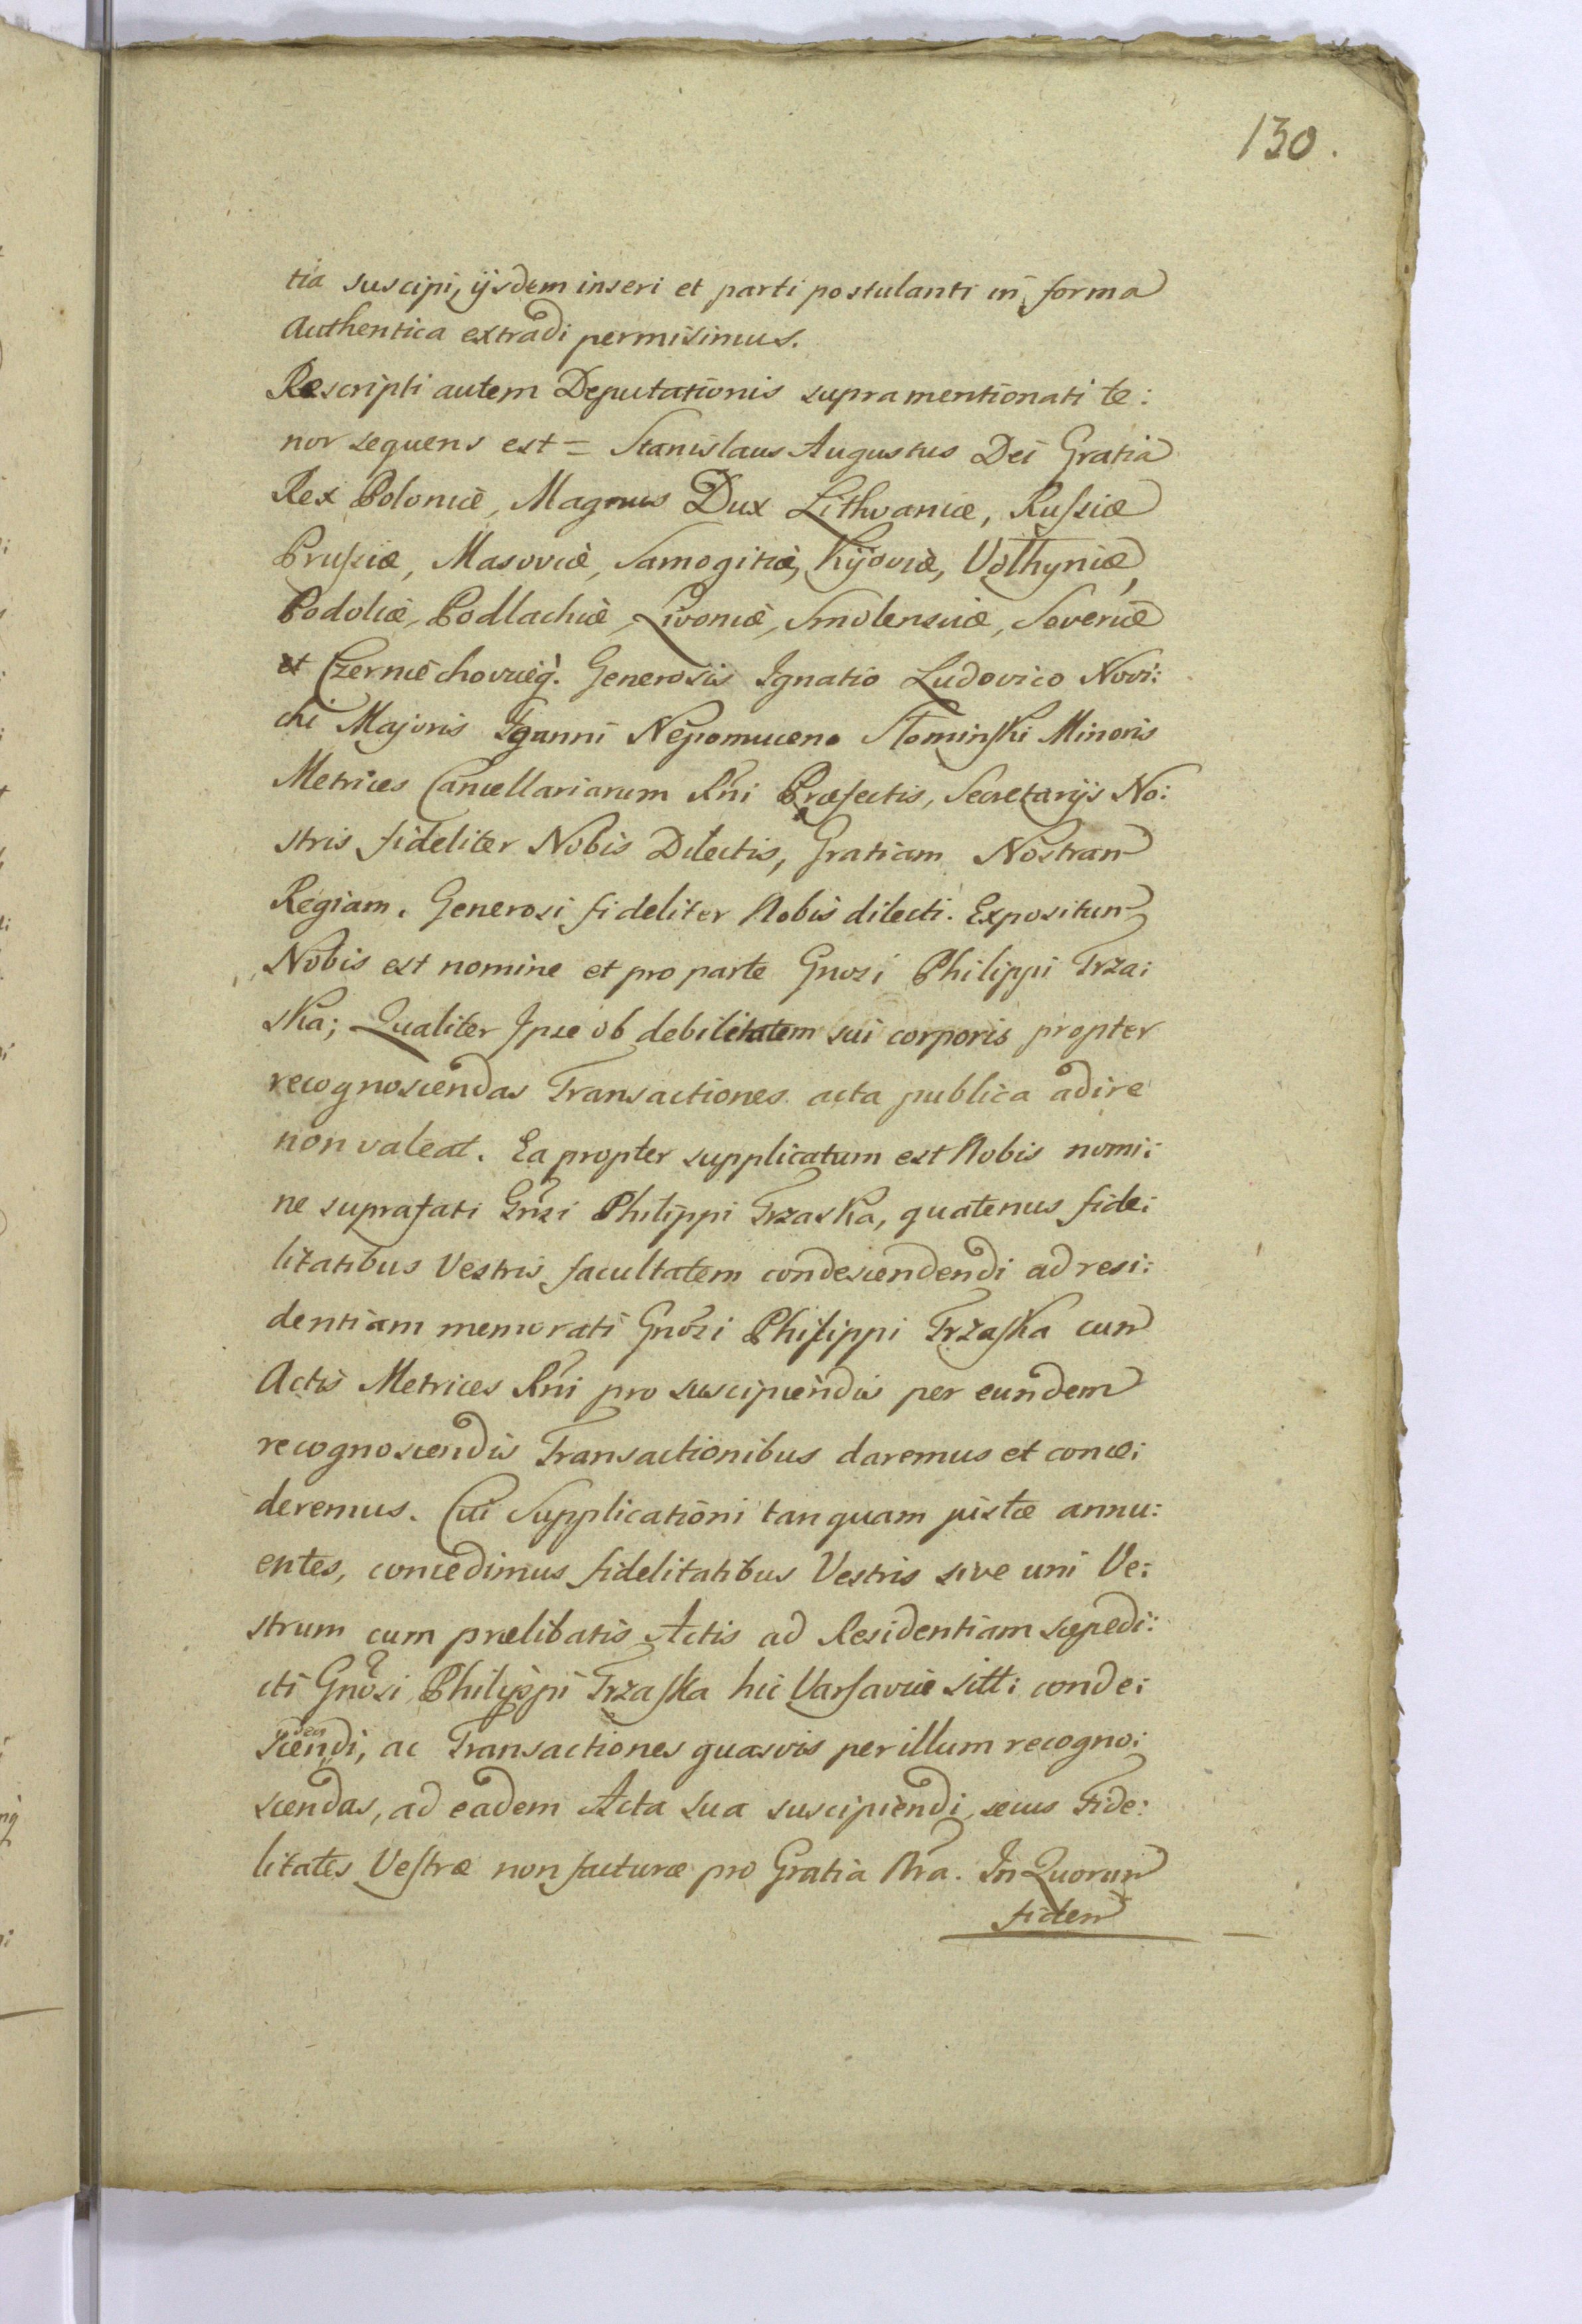 130.
tia suscipi, ijsdem inseri et parti postulanti in forma
Authentica extradi permisimus.
Rescripti autem Deputationis supramentionati te:
nor sequens est = Stanislaus Augustus Dei Gratia
Rex Poloniæ, Magnus Dux Lithvaniæ, Russiæ
Prussiæ, Masoviæ, Samogitiæ, Kijoviæ, Volhyniæ,
Podoliæ, Podlachiæ, Livoniæ, Smolensiæ, Severiæ
et Czerniechoviæq̀. Generosis Ignatio Ludovico Novi:
cki Majoris Joanni Nepomuceno Słominski Minoris
Metrices Cancellariarum Rni Præfectis, Secretarijs No:
stris fideliter Nobis Dilectis, Gratiam Nostram
Regiam. Generosi fideliter Nobis dilecti. Expositum
Nobis est nomine et pro parte Gnosi Philippi Trza:
ska; Qualiter Ipse ob debilitatem sui corporis propter
recognoscendas Transactiones acta publica adire
non valeat. Ea propter supplicatum est Nobis nomi:
ne suprafati Gnsi Philippi Trzaska, quatenus fide:
litatibus Vestris facultatem condescendendi ad resi:
dentiam memorati Gnosi Philippi Trzaska cum
Actis Metrices Rni pro suscipiendis per eundem
recognoscendis Transactionibus daremus et conce:
deremus. Cui Supplicationi tanquam justæ annu:
entes, concedimus fidelitatibus Vestris sive uni Ve:
strum cum prælibatis Actis ad Residentiam sæpedi:
cti Gnosi Philippi Trzaska hic Varsaviæ sitt: conde:
scendendi, ac Transactiones quasvis per illum recogno:
scendas, ad eadem Acta sua suscipiendi, secus Fide:
litates Vestræ non facturæ pro Gratia Nra. In Quorum
fidem